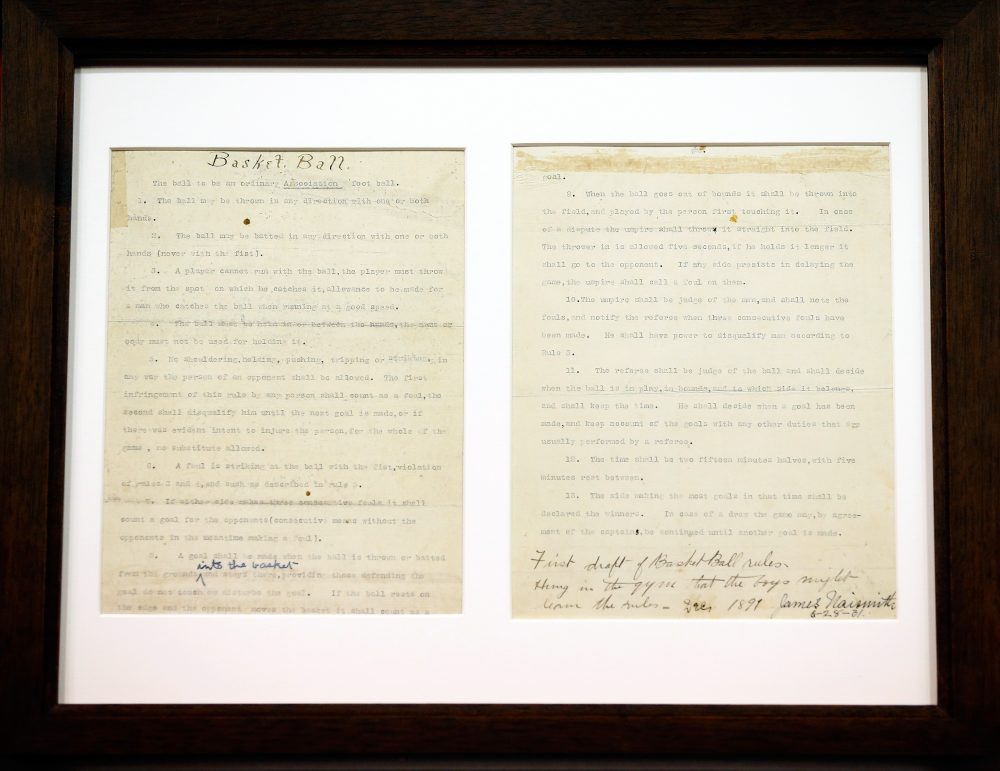 Basket Ball.
The ball to be an ordinary Association foot ball.
1. The ball may be thrown in any direction with one or both
hands.
2. The ball may be batted in any direction with one or both
hands (never with the fist).
3. A player cannot run with the ball,the player must throw
it from the spot on which he catches it,allowance to be made for
a man who catches the ball when running at a good speed.
4. The ball must be held in or between the hands,the arms or
body must not be used for holding it.
5. No shouldering,holding, pushing, tripping or striking, in
any way the person of an opponent shall be allowed. The first
infringement of this rule by any person shall count as a foul,the
second shall disqualify him until the next goal is made,or if
there was evident intent to injure the person,for the whole of the
game , no substitute allowed.
6. A foul is striking at the ball with the fist,violation
of rules 3 and 4,and such as described in rule 5.
7. If either side makes three consecutive fouls it shall
count a goal for the opponents(consecutive means without the
opponents in the meantime making a foul).
8. A goal shall be made when the ball is thrown or batted
into the basket
from the grounds and stays there,providing those defending the
goal do not touch or disturbe the goal. If the ball rests on
the edge and the opponent moves the basket it shall count as a
goal.
9. When the ball goes out of bounds it shall be thrown into
the field,and played by the person first touching it. In case
of a dispute the umpire shall throw it straight into the field.
The thrower in is allowed five seconds,if he holds it longer it
shall go to the opponent. If any side presists in delaying the
game,the umpire shall call a foul on them.
10.The umpire shall be judge of the men,and shall note the
fouls,and notify the referee when three consecutive fouls have
been made. He shall have power to disqualify men according to
Rule 5.
11. The referee shall be judge of the ball and shall decide
when the ball is in play,in bounds,and to which side it belongs,
and shall keep the time. He shall decide when a goal has been
made,and keep account of the goals with any other duties that are
usually performed by a referee.
12. The time shall be two fifteen minutes halves,with five
minutes rest between.
13. The side making the most goals in that time shall be
declared the winners. In case of a draw the game may,by agree-
ment of the captains,be continued until another goal is made.
First draft of Basket Ball rules.
Hung in the gym that the boys might
learn the rules - Dec 1891 James Naismith
6-28-31.